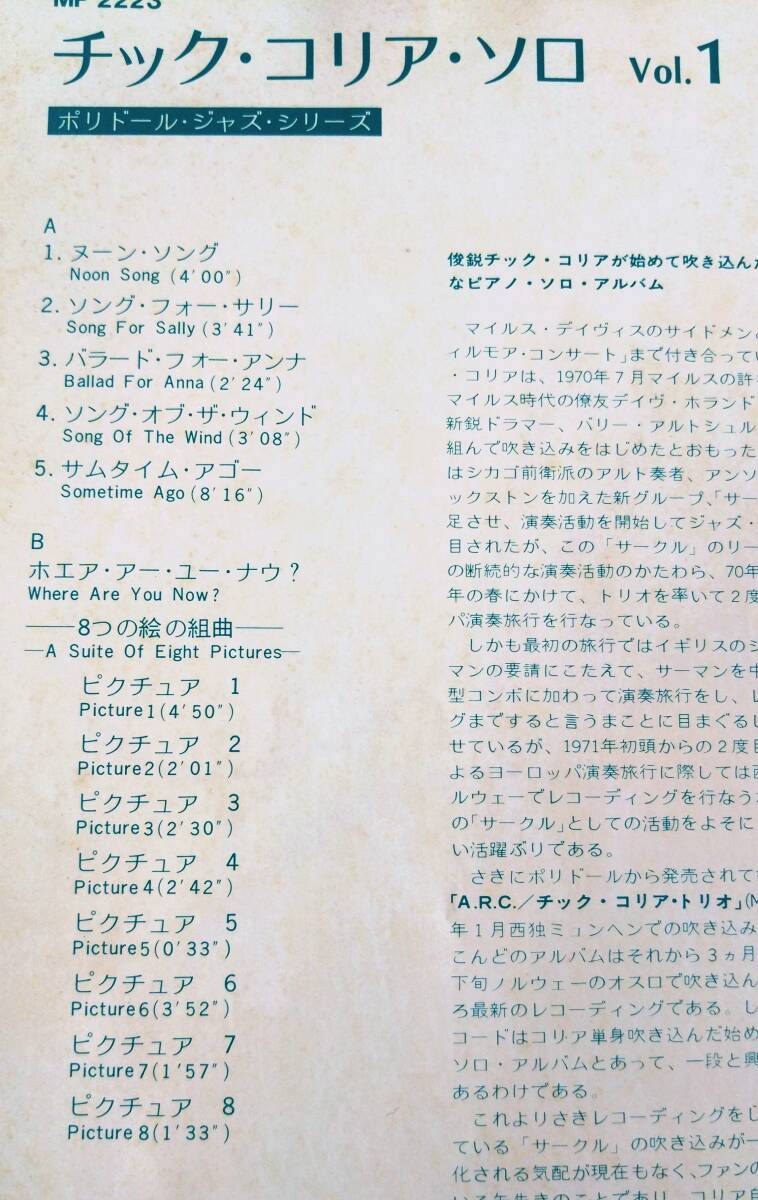 MP 2223
チック・コリア・ソロ Vol.1
ポリドール・ジャズ・シリーズ
A
1. ヌーン・ソング
Noon Song (4′00″)
2. ソング・フォー・サリー
Song For Sally (3′41″)
3. バラード・フォー・アンナ
Ballad For Anna (2′24″)
4. ソング・オブ・ザ・ウィンド
Song Of The Wind (3′08″)
5. サムタイム・アゴー
Sometime Ago (8′16″)
B
ホエア・アー・ユー・ナウ?
Where Are You Now?
——8つの絵の組曲——
—A Suite Of Eight Pictures—
ピクチュア 1
Picture1 (4′50″)
ピクチュア 2
Picture2 (2′01″)
ピクチュア 3
Picture3 (2′30″)
ピクチュア 4
Picture4 (2′42″)
ピクチュア 5
Picture5 (0′33″)
ピクチュア 6
Picture6 (3′52″)
ピクチュア 7
Picture7 (1′57″)
ピクチュア 8
Picture8 (1′33″)
俊鋭チック・コリアが始めて吹き込んだ
なピアノ・ソロ・アルバム
マイルス・デイヴィスのサイドメン
ィルモア・コンサート」まで付き合ってい
・コリアは、1970年7月マイルスの許
マイルス時代の僚友デイヴ・ホランド
新鋭ドラマー、バリー・アルトシュル
組んで吹き込みをはじめたとおもった
はシカゴ前衛派のアルト奏者、アンソ
ックストンを加えた新グループ、「サー
足させ、演奏活動を開始してジャズ・
目されたが、この「サークル」のリー
の断続的な演奏活動のかたわら、70年
年の春にかけて、トリオを率いて2度
パ演奏旅行を行なっている。
しかも最初の旅行ではイギリスのジ
マンの要請にこたえて、サーマンを中
型コンボに加わって演奏旅行をし、レ
グまですると言うまことに目まぐるし
せているが、1971年初頭からの2度目
よるヨーロッパ演奏旅行に際しては西
ルウェーでレコーディングを行なう
の「サークル」としての活動をよそに
い活躍ぶりである。
さきにポリドールから発売されて
「A.R.C./チック・コリア・トリオ」(M
年1月西独ミュンヘンでの吹き込み
こんどのアルバムはそれから3ヵ月
下旬ノルウェーのオスロで吹き込ん
ろ最新のレコーディングである。し
コードはコリア単身吹き込んだ始め
ソロ・アルバムとあって、一段と興
あるわけである。
これよりさきレコーディングをし
ている「サークル」の吹き込みが一
化される気配が現在もなく、ファンの